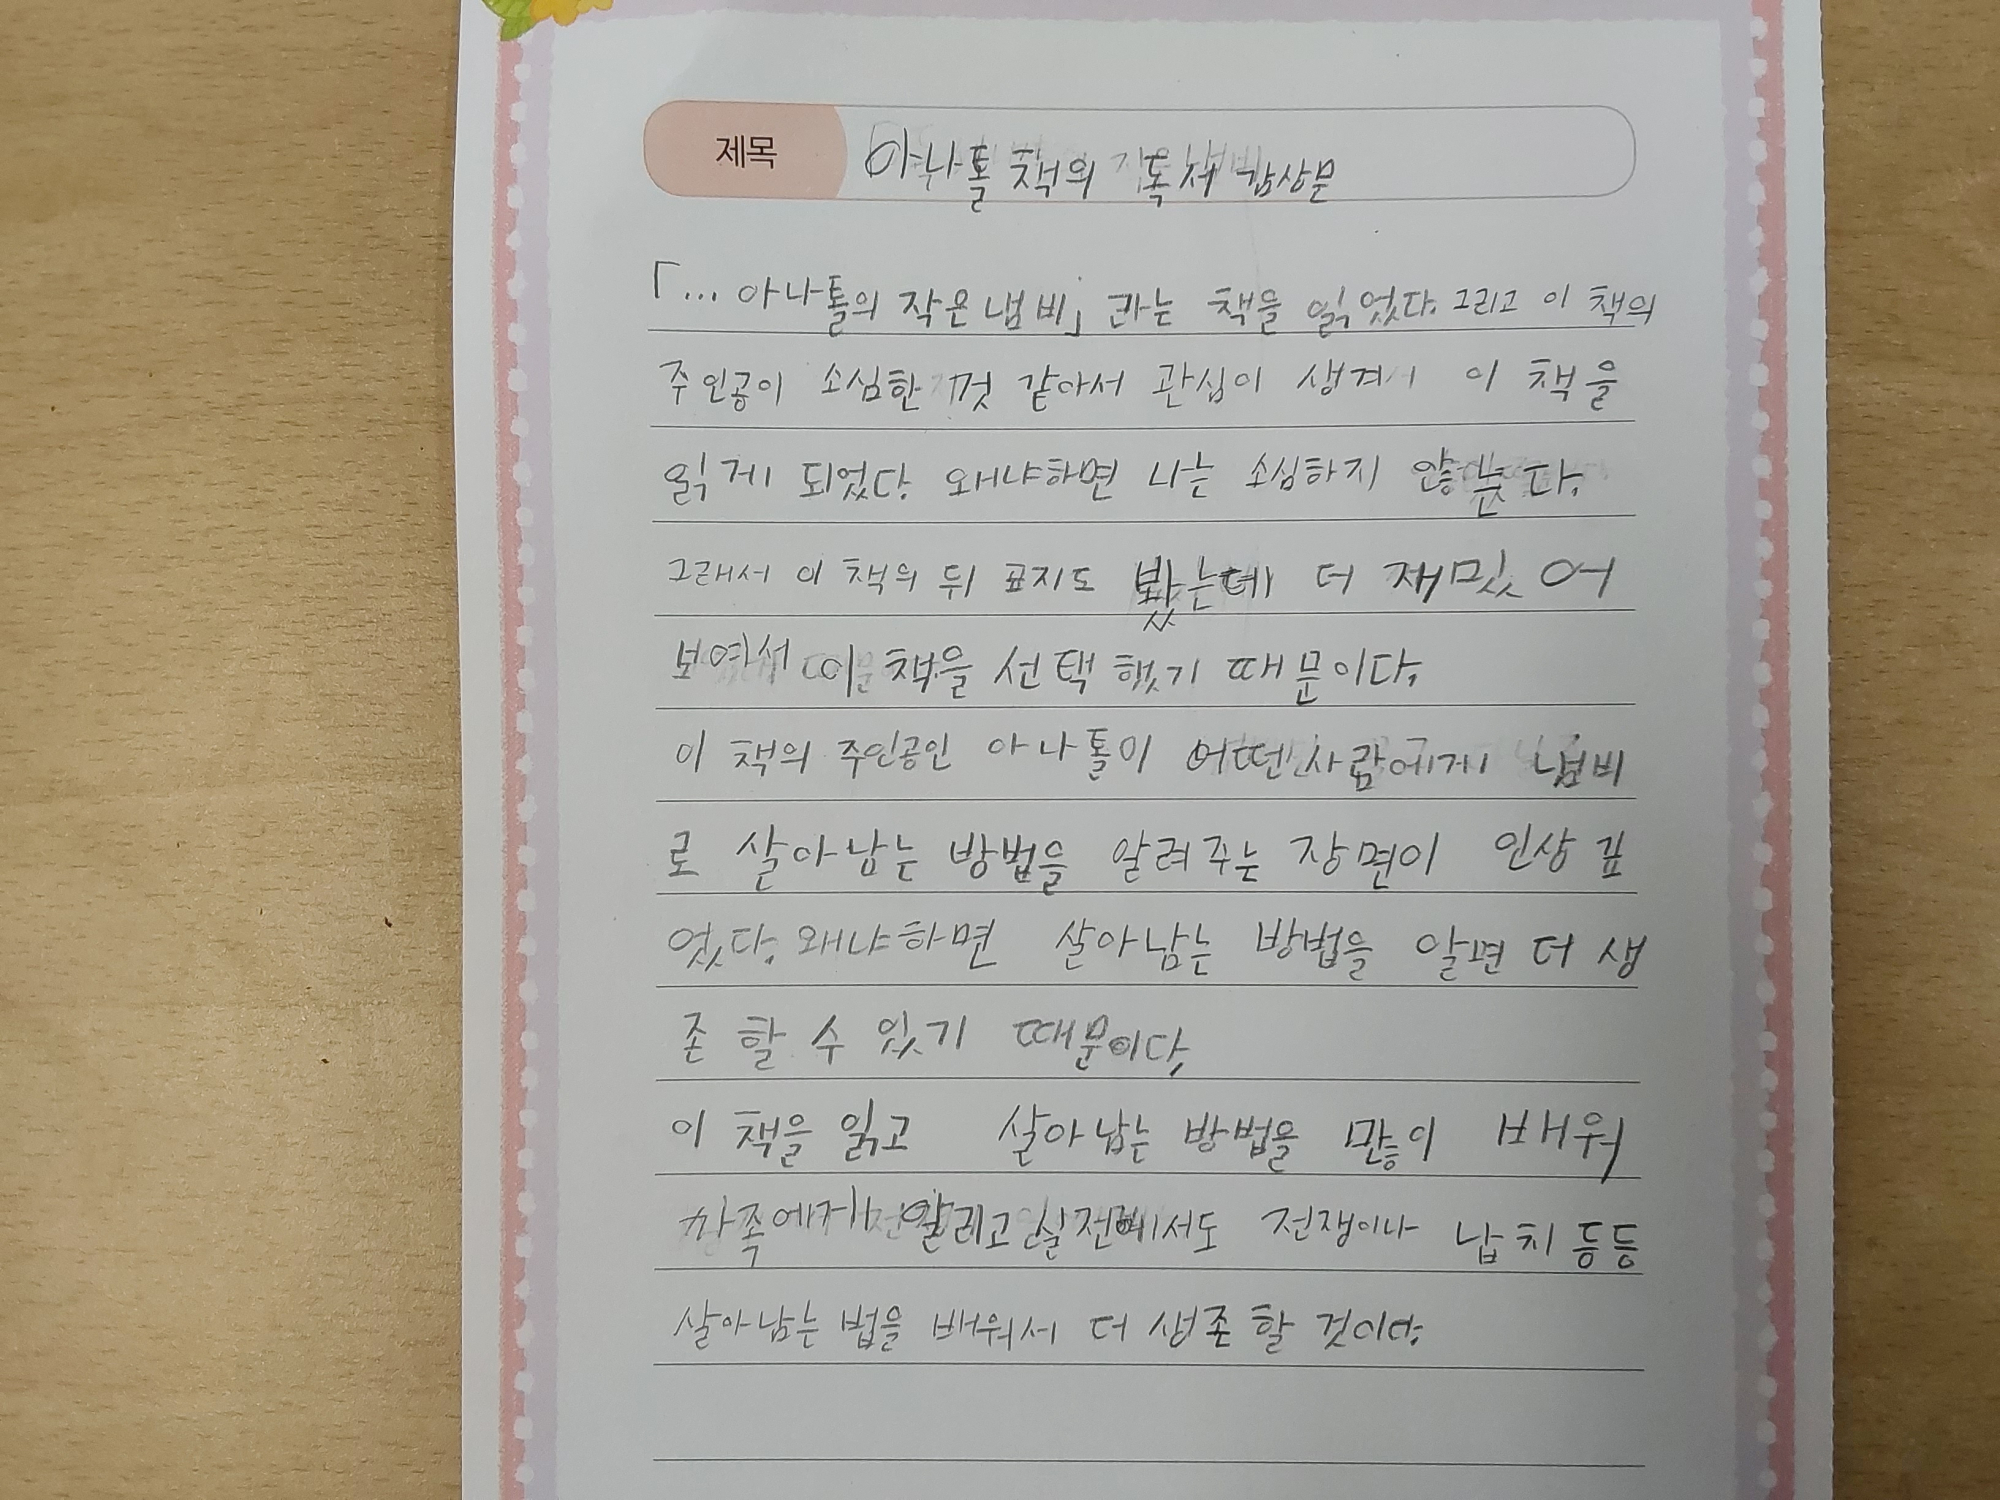 제목 아나톨 책의 독서 감상문
「... 아나톨의 작은 냄비」 라는 책을 읽었다. 그리고 이 책의
주인공이 소심한 것 같아서 관심이 생겨서 이 책을
읽게 되었다. 왜냐하면 나는 소심하지 않는다.
그래서 이 책의 뒤 표지도 봤는데 더 재밌어
보여서 이 책을 선택했기 때문이다.
이 책의 주인공인 아나톨이 어떤 사람에게 냄비
로 살아남는 방법을 알려주는 장면이 인상 깊
었다. 왜냐하면 살아남는 방법을 알면 더 생
존 할 수 있기 때문이다.
이 책을 읽고 살아남는 방법을 많이 배워
가족에게 알리고 실전에서도 전쟁이나 납치 등등
살아남는 법을 배워서 더 생존 할 것이다.